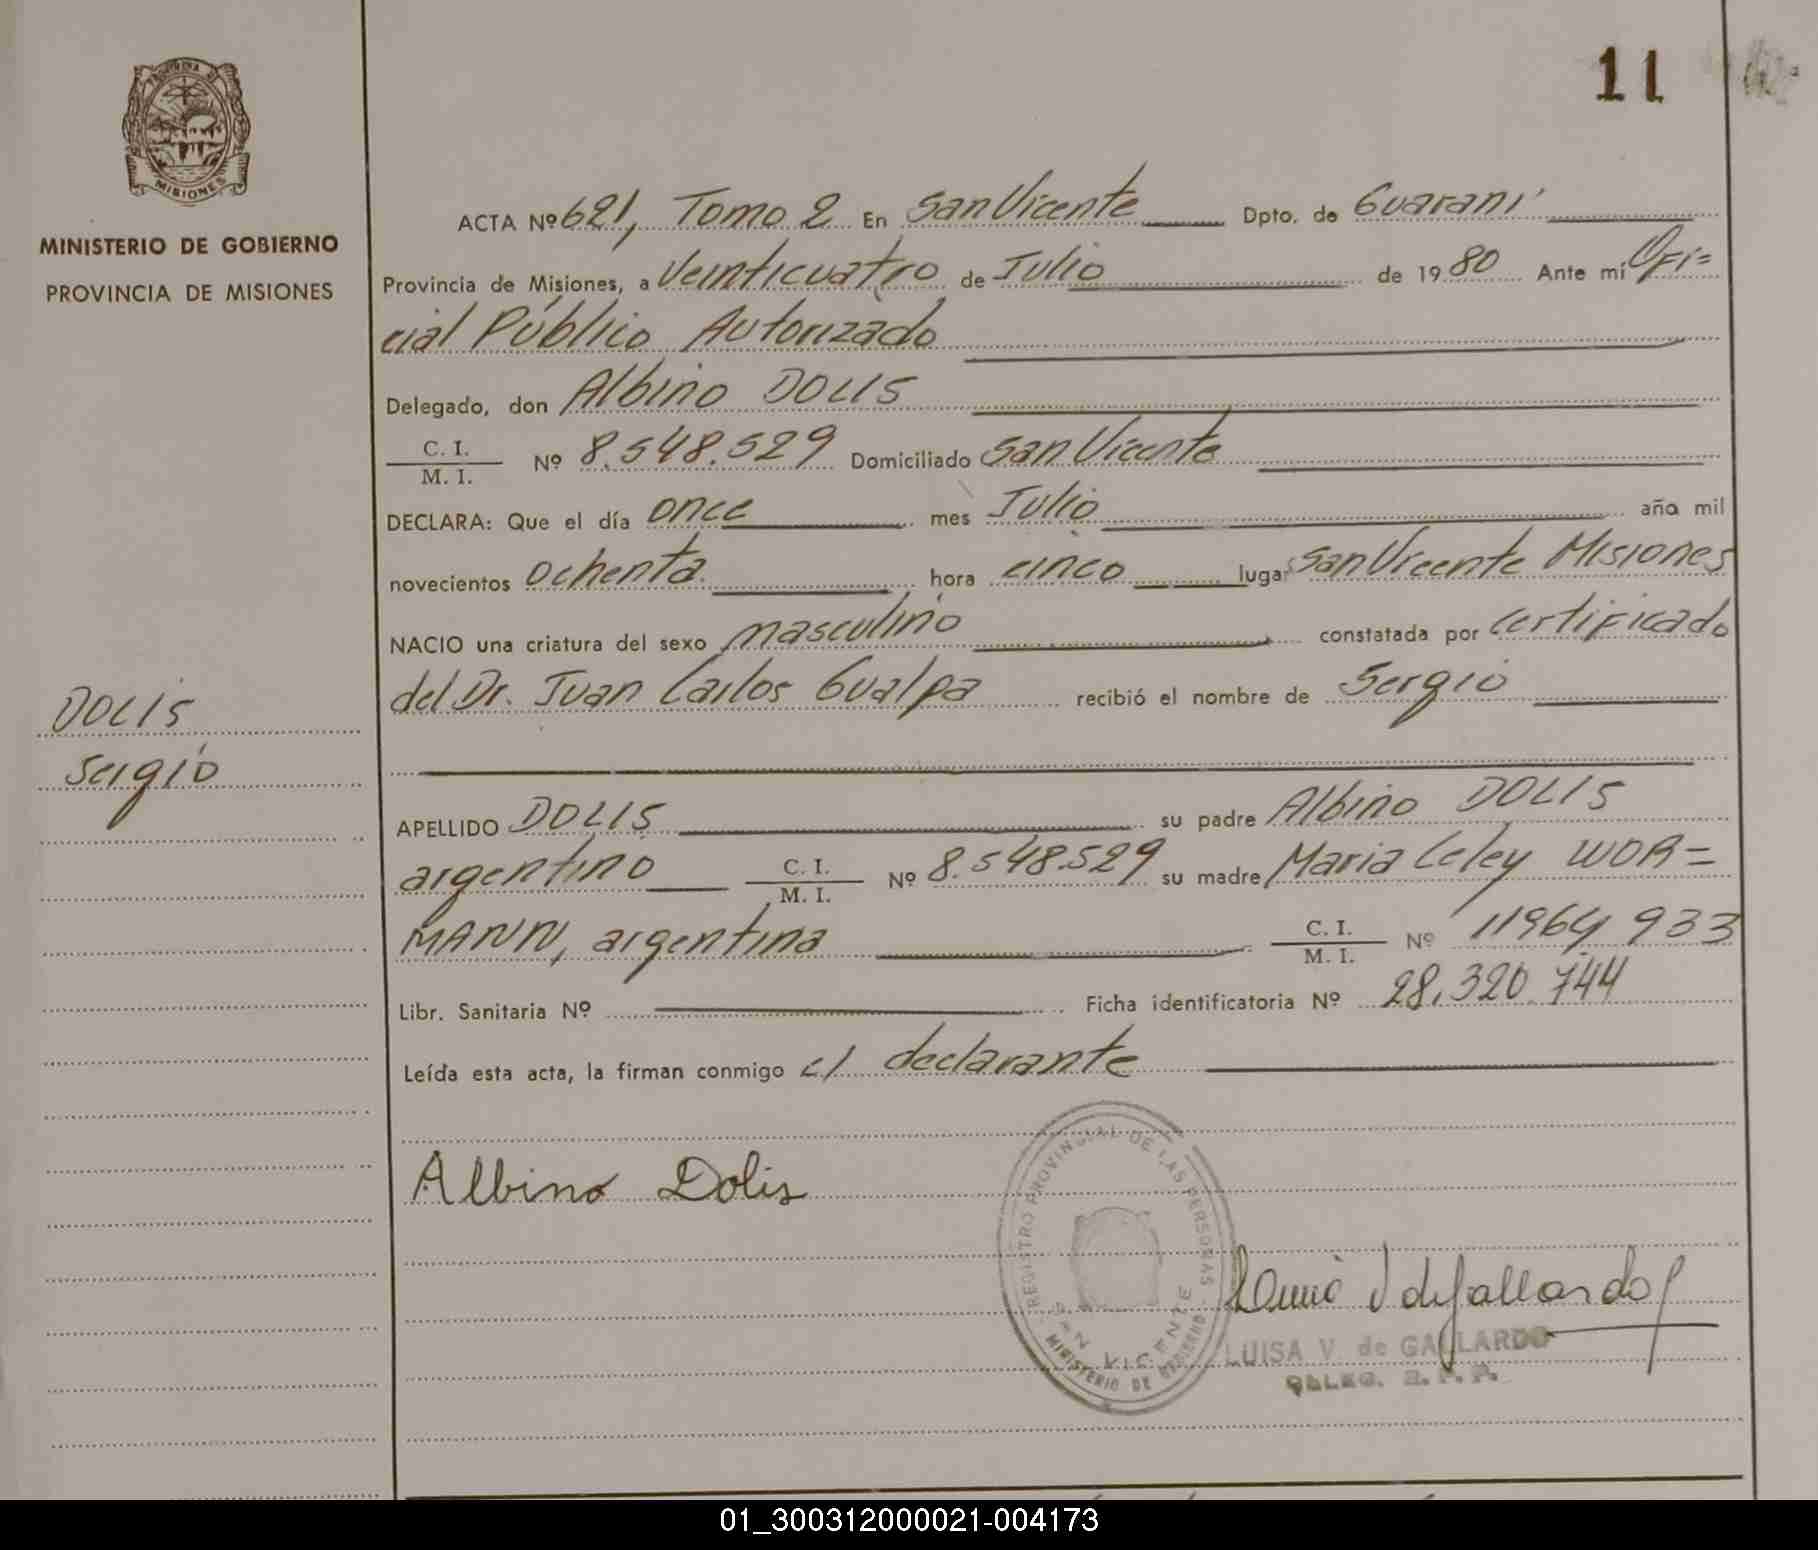 11
PROVINCIA DE
MISIONES
MINISTERIO DE GOBIERNO
PROVINCIA DE MISIONES
ACTA Nº 621, Tomo 2 En San Vicente Dpto. de Guaraní
Provincia de Misiones, a Veinticuatro de Julio de 1980 Ante mí Ofi=
cial Público Autorizado
Delegado, don Albino DOLIS
C. I.
M. I.
Nº 8.548.529 Domiciliado San Vicente
DECLARA: Que el día once mes Julio año mil
novecientos ochenta hora cinco lugar San Vicente Misiones
NACIO una criatura del sexo masculino constatada por certificado
del Dr. Juan Carlos Gualpa recibió el nombre de Sergio
DOLIS
Sergio
APELLIDO DOLIS su padre Albino DOLIS
argentino C. I. / M. I. Nº 8.548.529 su madre Maria Celey WOR=
MANN, argentina C. I. / M. I. Nº 11964.933
Libr. Sanitaria Nº Ficha identificatoria Nº 28.320.744
Leída esta acta, la firman conmigo el declarante
Albino Dolis
REGISTRO PROVINCIAL DE LAS PERSONAS
SAN VICENTE
MINISTERIO DE GOBIERNO
V de Gallardo
LUISA V. de GALLARDO
DELEG. R. P. P.
01_300312000021-004173